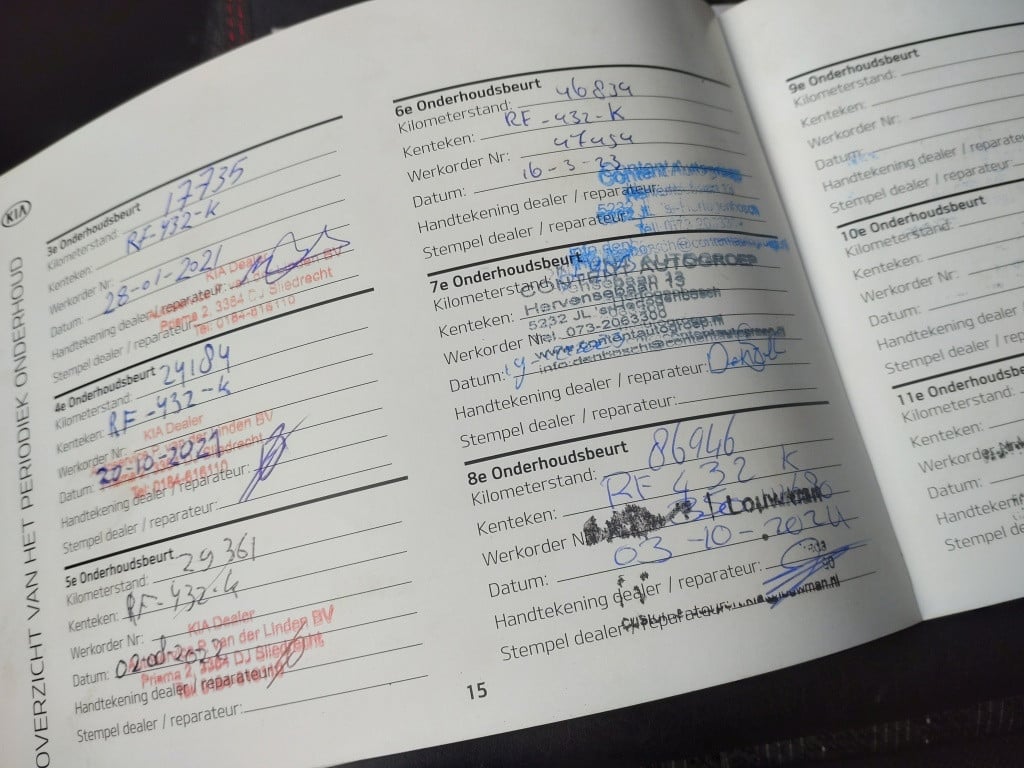 KIA
OVERZICHT VAN HET PERIODIEK ONDERHOUD
3e Onderhoudsbeurt
Kilometerstand: 17735
Kenteken: RF-432-K
Werkorder Nr:
Datum: 28-01-2021
Handtekening dealer / reparateur:
Stempel dealer / reparateur:
KIA Dealer
Prisma 2, 3364 DJ Sliedrecht
Tel: 0184-616110
4e Onderhoudsbeurt
Kilometerstand: 24184
Kenteken: RF-432-K
Werkorder Nr:
Datum: 20-10-2021
Handtekening dealer / reparateur:
Stempel dealer / reparateur:
KIA Dealer
van der Linden BV
Sliedrecht
Tel: 0184-616110
5e Onderhoudsbeurt
Kilometerstand: 29361
Kenteken: RF-432-K
Werkorder Nr:
Datum:
Handtekening dealer / reparateur:
Stempel dealer / reparateur:
KIA Dealer
van der Linden BV
Prisma 2, 3364 DJ Sliedrecht
6e Onderhoudsbeurt
Kilometerstand: 46839
Kenteken: RF-432-K
Werkorder Nr: 47454
Datum: 16-3-23
Handtekening dealer / reparateur:
Stempel dealer / reparateur:
Content Autogroep
7e Onderhoudsbeurt
Kilometerstand:
Kenteken:
Werkorder Nr:
Datum:
Handtekening dealer / reparateur:
Stempel dealer / reparateur:
AUTOGROEP
5232 JL
Tel. 073-2063300
www.contentautogroep.nl
8e Onderhoudsbeurt
Kilometerstand: 86946
Kenteken: RF 432 K
Werkorder
Datum: 03-10-2024
Handtekening dealer / reparateur:
Stempel dealer / reparateur:
Louwman
15
9e Onderhoudsbeurt
Kilometerstand:
Kenteken:
Werkorder Nr:
Datum:
Handtekening dealer / reparate
Stempel dealer / reparateur
10e Onderhoudsbeurt
Kilometerstand:
Kenteken:
Werkorder Nr:
Datum:
Handtekening dealer /
Stempel dealer / rep
11e Onderhoudsbe
Kilometerstand:
Kenteken:
Werkorder
Datum:
Handtekening
Stempel de